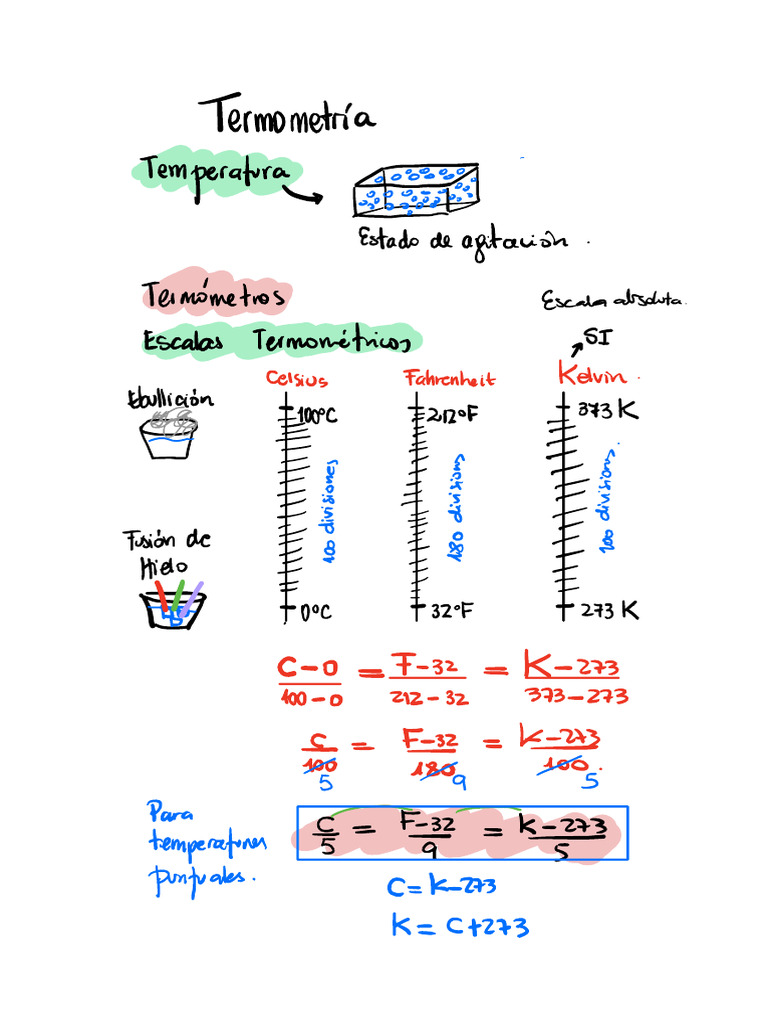 Termometría
Temperatura
Estado de agitación.
Termómetros
Escala absoluta.
Escalas Termométricos
SI
Celsius Fahrenheit Kelvin.
Ebullición
100°C 212°F 373 K
100 divisiones 180 divisions 100 divisions
Fusión de
Hielo
0°C 32°F 273 K
C-0/100-0 = F-32/212-32 = K-273/373-273
C/100 = F-32/180 = K-273/100.
5 9 5
Para
temperatures
puntuales.
C/5 = F-32/9 = K-273/5
C = K-273
K = C+273